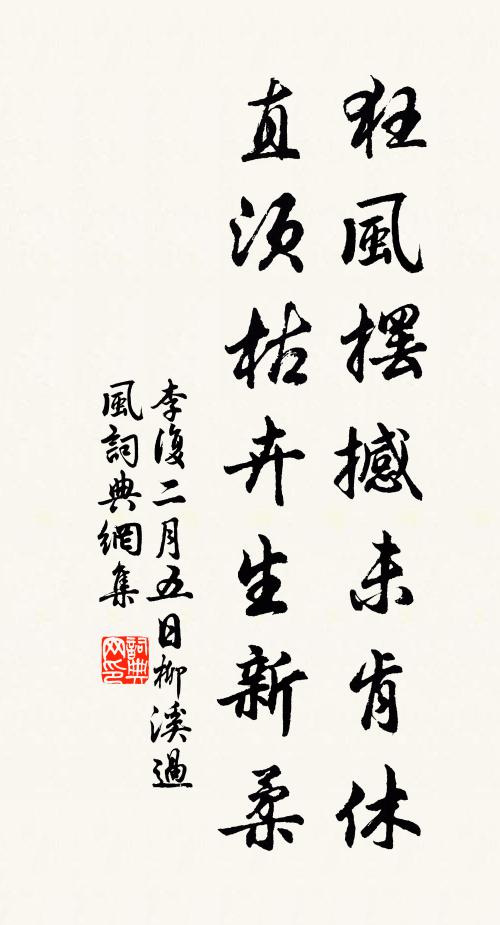 狂風擺撼未肯休
直須枯卉生新柔
李復二月五日柳溪過
風詞典網集
詞典網印